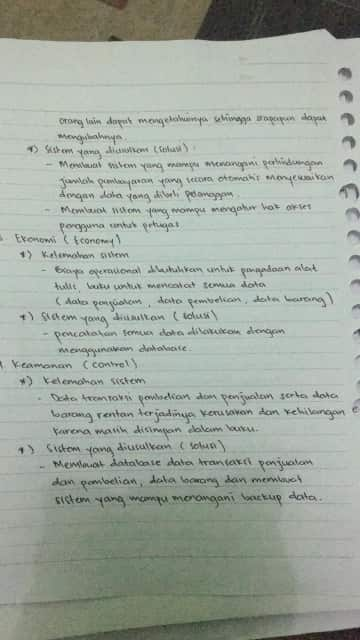 orang lain dapat mengetahuinya sehingga siapapun dapat
mengubahnya.
*) Sistem yang diusulkan (solusi) :
- Membuat sistem yang mampu menangani perhitungan
jumlah pembayaran yang secara otomatis menyesuaikan
dengan data yang dibeli pelanggan.
- Membuat sistem yang mampu mengatur hak akses
pengguna untuk petugas
Ekonomi (Economy)
*) Kelemahan sistem
- Biaya operasional dibutuhkan untuk pengadaan alat
tulis, buku untuk mencatat semua data
(data penjualan, data pembelian, data barang)
*) Sistem yang diusulkan (solusi)
- pencatatan semua data dilakukan dengan
menggunakan database.
Keamanan (control)
*) Kelemahan sistem
- Data transaksi pembelian dan penjualan serta data
barang rentan terjadinya kerusakan dan kehilangan
karena masih disimpan dalam buku.
*) Sistem yang diusulkan (solusi)
- Membuat database data transaksi penjualan
dan pembelian, data barang dan membuat
sistem yang mampu menangani backup data.